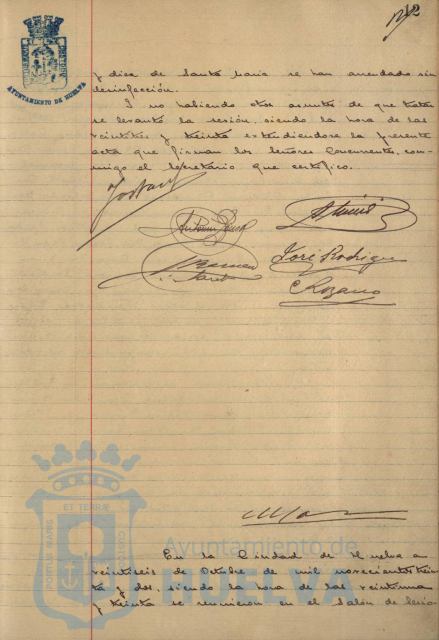 AYUNTAMIENTO DE HUELVA
y diez de Santa María se han arrendado sin
desinfección.
Y no habiendo otros asuntos de que tratar
se levantó la sesión, siendo la hora de las
veintitres y treinta extendiendose la presente
acta que firman los Señores Concurrentes, con-
migo el Secretario que certifico.
José Rodrigue
C Rozano
PORTUS MARIS
ET TERRÆ
CUSTODIA
Ayuntamiento de
HUELVA
En la Ciudad de Huelva a
veintiseis de Octubre de mil novecientos trein
ta y dos, siendo la hora de las veintiuna
y treinta se reunieron en el Salón de Sesio